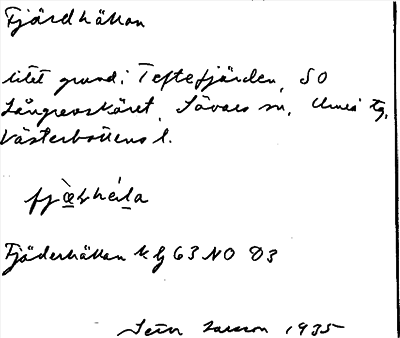 Fjärdhällan
litet grund i Teftefjärden, SO
Långrevskäret, Sävars sn, Umeå tg,
Västerbottens l.
Fjäderhällan k bl 63 NO D3
1935